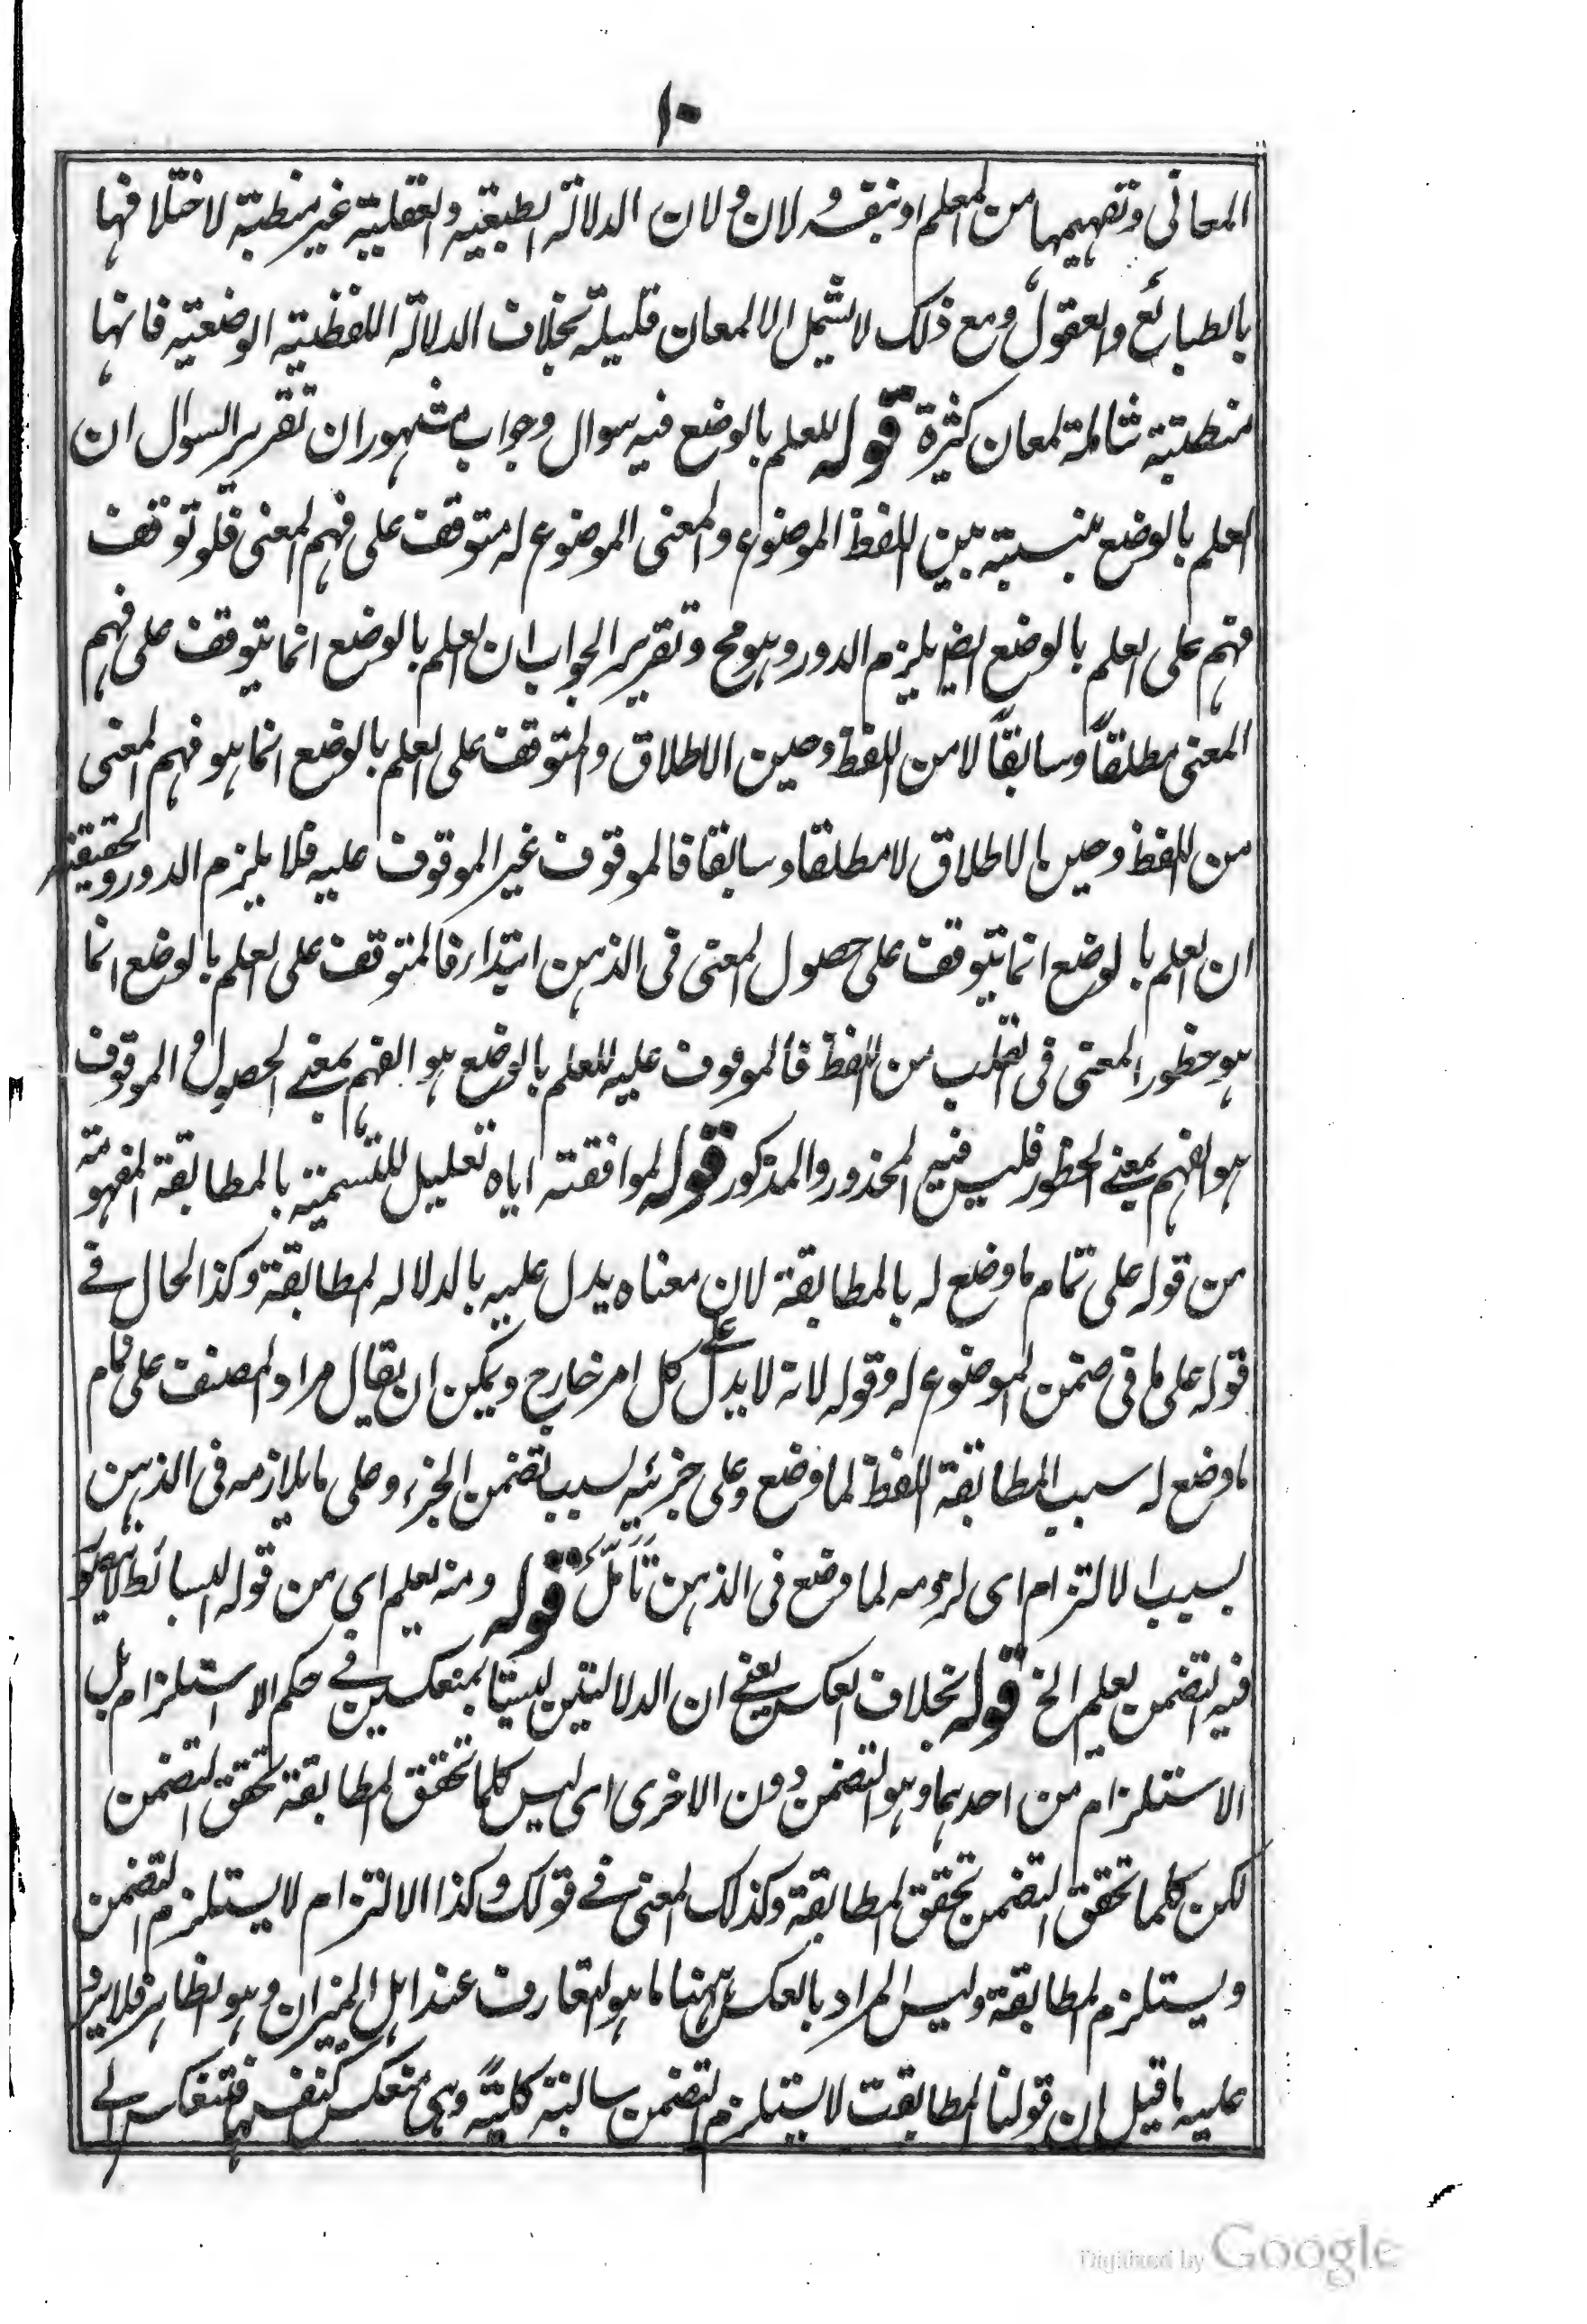 ١٠
المعاني وتفهيمها من المعلم او بتفسه ولان ولان الدلالة الطبعية والعقلية غير منضبطة لاختلافها
بالطبائع والعقول ومع ذلك لا يشمل الا لمعان قليلة بخلاف الدلالة اللفظية الوضعية فانها
منضبطة شاملة لمعان كثيرة قوله للعلم بالوضع فيه سوال وجواب مشهوران تقرير السوال ان
العلم بالوضع نسبته بين اللفظ الموضوع والمعنى الموضوع له متوقف على فهم المعنى فلو توقف
فهم على العلم بالوضع ايض يلزم الدور وهو مح وتقرير الجواب ان العلم بالوضع انما يتوقف على فهم
المعنى مطلقاً وسابقاً لا من اللفظ وحين الاطلاق والمتوقف على العلم بالوضع انما هو فهم المعنى
من اللفظ وحين الاطلاق لا مطلقا وسابقا فالموقوف غير الموقوف عليه فلا يلزم الدور وتحقيقه
ان العلم بالوضع انما يتوقف على حصول المعنى فى الذهن ابتداء فالمتوقف على العلم بالوضع انما
هو خطور المعنى فى القلب من اللفظ فالموقوف عليه للعلم بالوضع هو الفهم بمعنے الحصول والموقوف
هو الفهم بمعنے الخطور فليس فيه المحذور والمذكور قوله لموافقته اياه تعليل للتسمية بالمطابقة المفهومة
من قوله على تمام ما وضع له بالمطابقة لان معناه يدل عليه بالدلاله المطابقة وكذا الحال فے
قوله على ما فى ضمن الموضوع له وقوله لانه لا يدل علے كل امر خارج ويمكن ان يقال مراد المصنف على تمام
ما وضع له سبب المطابقة اللفظ لما وضع وعلى جزئيه لسبب تضمن الجزء وعلى ما يلازمه فى الذهن
بسبب الالتزام اى لزومه لما وضع فى الذهن تأمل قوله ومنه يعلم اى من قوله البسائط لا
فيه التضمن يعلم الخ قوله بخلاف العكس يعنے ان الدلالتين ليستا بمنعكسين فے حكم الاستلزام بل
الاستلزام من احدهما وهو التضمن دون الاخرى اى ليس كلما تحقق المطابقة تحقق التضمن
لكن كلما تحقق التضمن تحقق المطابقة وكذلك المعنى فے قولك وكذا الالتزام لا يستلزم التضمن
ويستلزم المطابقة وليس المراد بالعكس ههنا ما هو المتعارف عند اهل الميزان وهو الظاهر فلا يرد
عليه ما قيل ان قولنا المطابقت لا يستلزم التضمن سالبة كلية وهى تنعكس كنفسها فتنعكس الے
Digitized by Google